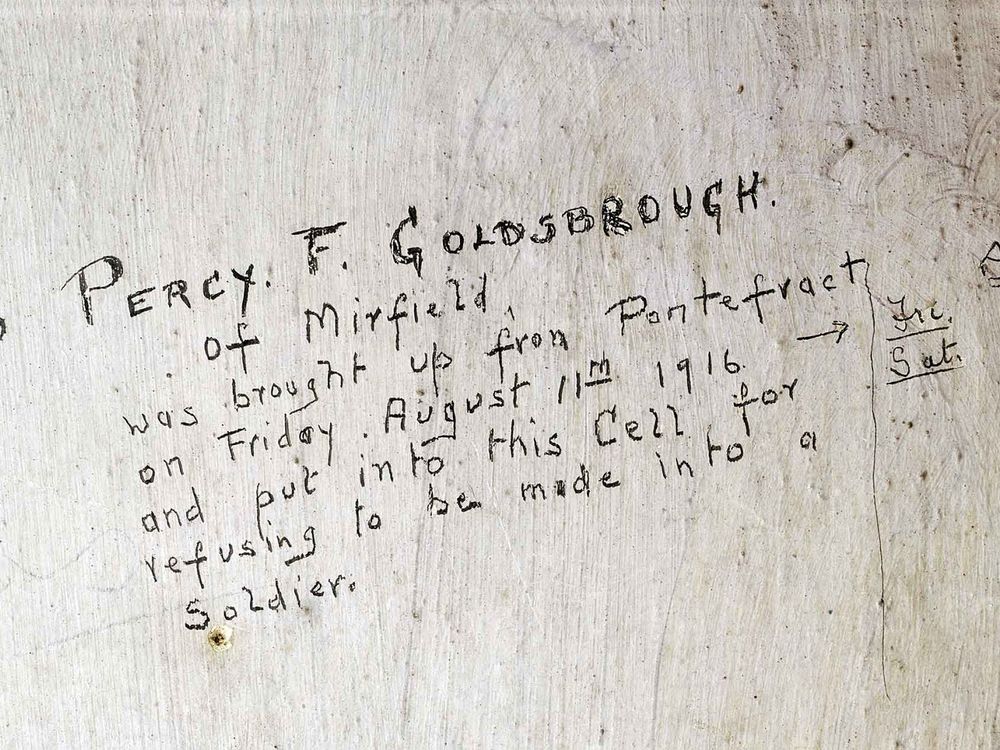 PERCY. F. GOLDSBROUGH.
of Mirfield.
was brought up from Pontefract
on Friday. August 11th 1916.
and put into this Cell for
refusing to be made into a
Soldier.
→
Fri.
Sat.